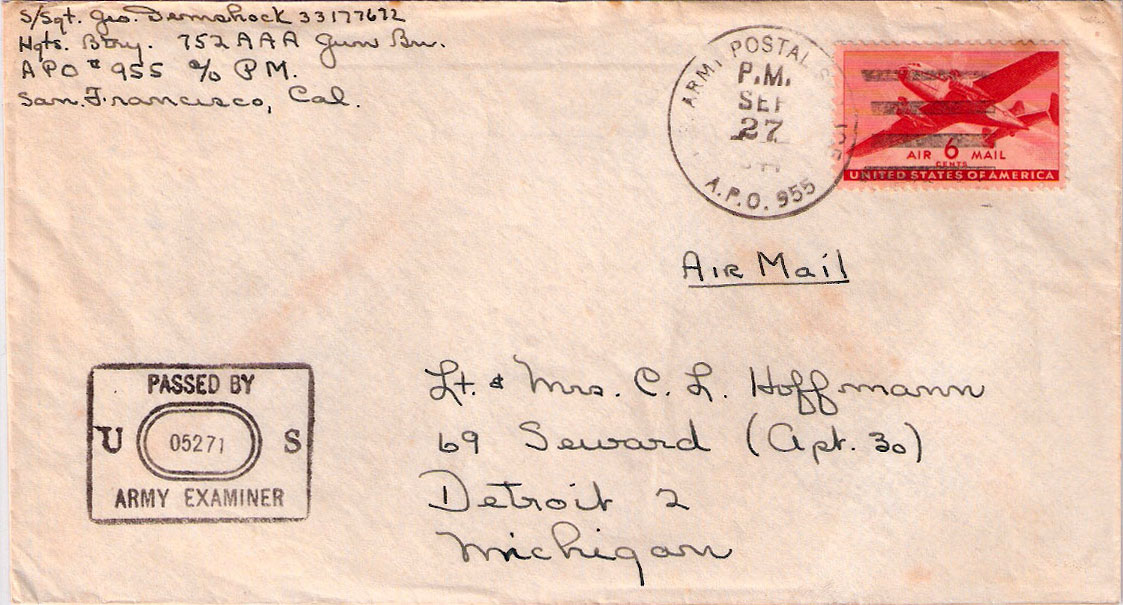 S/Sgt. Geo. Demshock 33177672
Hqts. Btry. 752 AAA Gun Bn.
APO # 955 c/o P.M.
San. Francisco, Cal.
ARMY POSTAL
P.M.
SEP
27
A.P.O. 955
AIR 6 MAIL
CENTS
UNITED STATES OF AMERICA
Air Mail
Lt. & Mrs. C. L. Hoffmann
69 Seward (Apt. 30)
Detroit 2
Michigan
PASSED BY
U 05271 S
ARMY EXAMINER